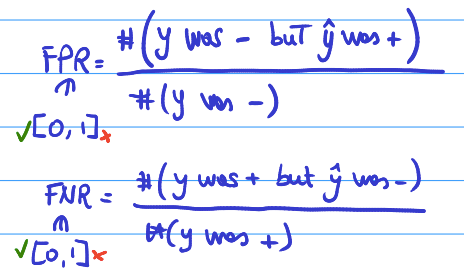 FPR = #(y was - but ŷ was +)
#(y was -)
✓[0,1]×
FNR = #(y was + but ŷ was -)
#(y was +)
✓[0,1]×